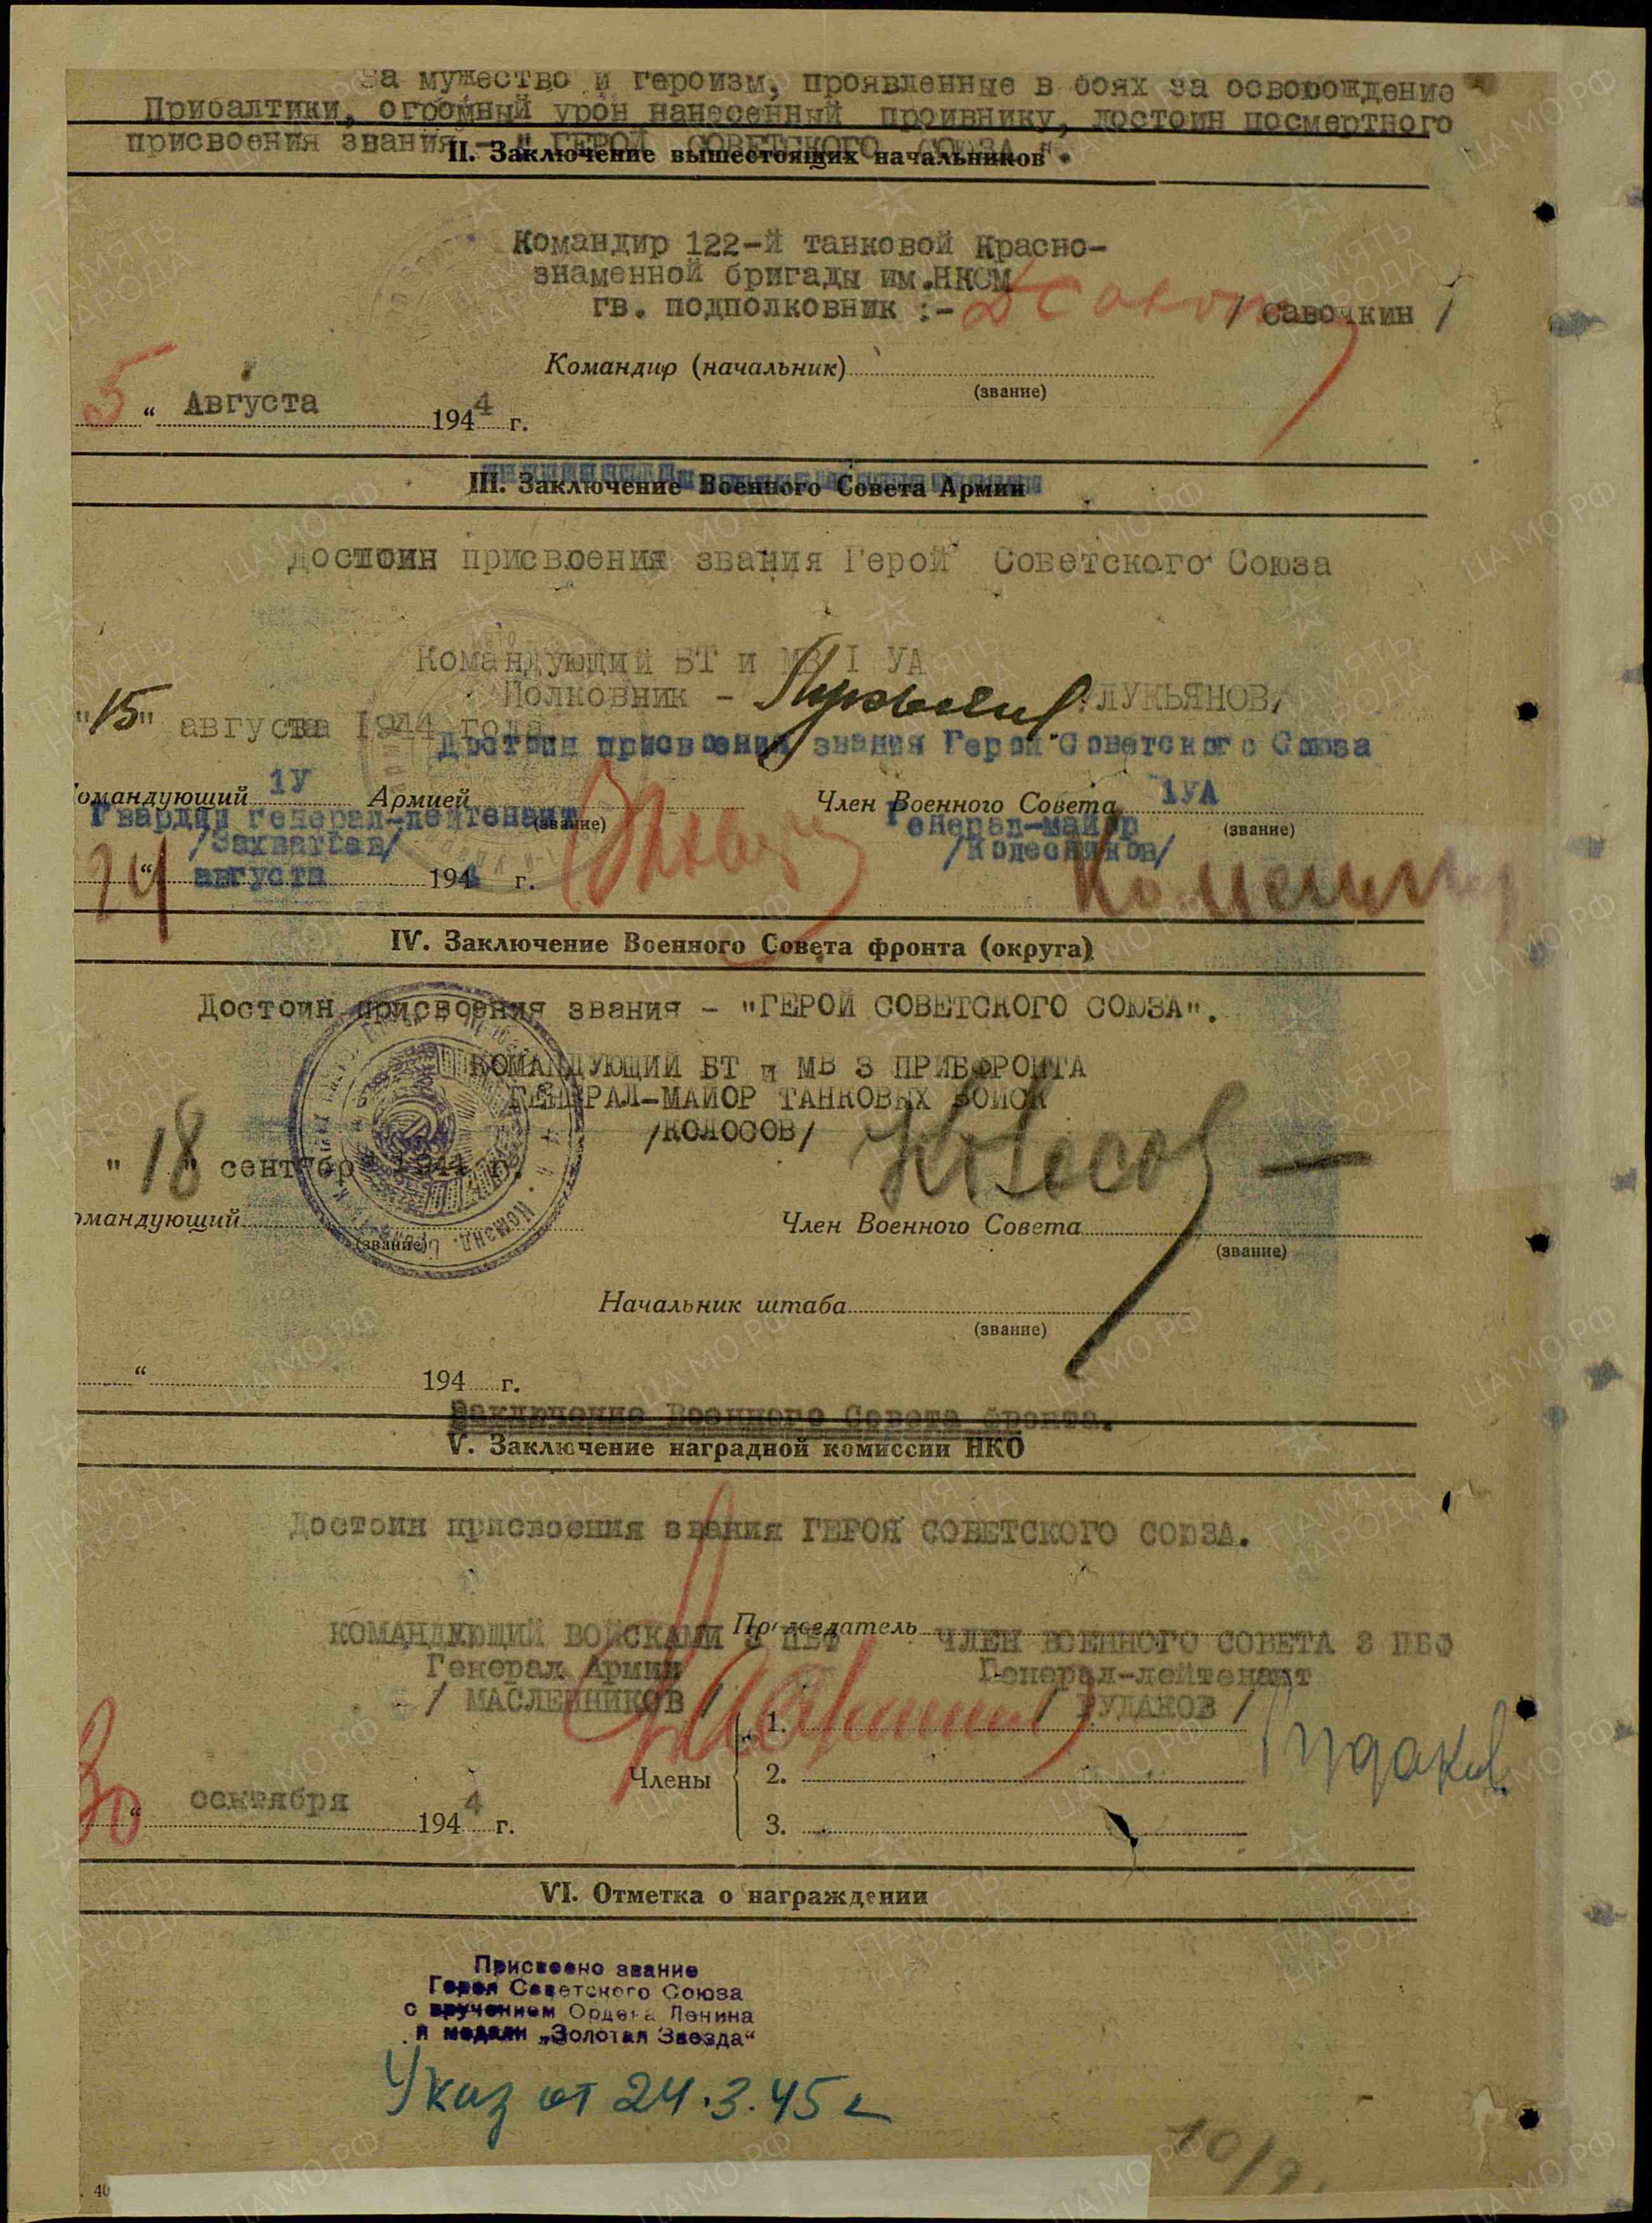 за мужество и героизм, проявленные в боях за освобождение
Прибалтики, огромный урон нанесенный проивнику, достоин посмертного
присвоения звания - " ГЕРОЙ СОВЕТСКОГО СОЮЗА ".
II. Заключение вышестоящих начальников
Командир 122-й танковой Красно-
знаменной бригады им.НКСМ
гв. подполковник :- / Савочкин /
Командир (начальник)
(звание)
5 " Августа 1944 г.
III. Заключение Военного Совета Армии
Достоин присвоения звания Герой Советского Союза
Командующий БТ и МВ 1 УА
Полковник - /ЛУКЬЯНОВ/
"15" августа 1944 года
Достоин присвоения звания Герой Советского Союза
Командующий 1У Армией
(звание)
Член Военного Совета 1УА
(звание)
Гвардии генерал-лейтенант
/Захватаев/
Генерал-майор
/Колесников/
24 " августа 1944 г.
IV. Заключение Военного Совета фронта (округа)
Достоин присвоения звания - "ГЕРОЙ СОВЕТСКОГО СОЮЗА".
КОМАНДУЮЩИЙ БТ и МВ 3 ПРИБФРОНТА
ГЕНЕРАЛ-МАЙОР ТАНКОВЫХ ВОЙСК
/КОЛОСОВ/
"18" сентября 1944 г.
омандующий
(звание)
Член Военного Совета
(звание)
Начальник штаба
(звание)
" 194 г.
Заключение Военного Совета фронта.
V. Заключение наградной комиссии НКО
Достоин присвоения звания ГЕРОЯ СОВЕТСКОГО СОЮЗА.
Председатель
КОМАНДУЮЩИЙ ВОЙСКАМИ 3 ПБФ ЧЛЕН ВОЕННОГО СОВЕТА 3 ПБФ
Генерал Армии Генерал-лейтенант
/ МАСЛЕННИКОВ / / РУДАКОВ /
Рудаков
Члены
1.
2.
3.
30 " сентября 1944 г.
VI. Отметка о награждении
Присвоено звание
Героя Советского Союза
с вручением Ордена Ленина
и медали „Золотая Звезда“
Указ от 24.3.45 г
10/9.
. 40
ПАМЯТЬ НАРОДА
ЦА МО РФ